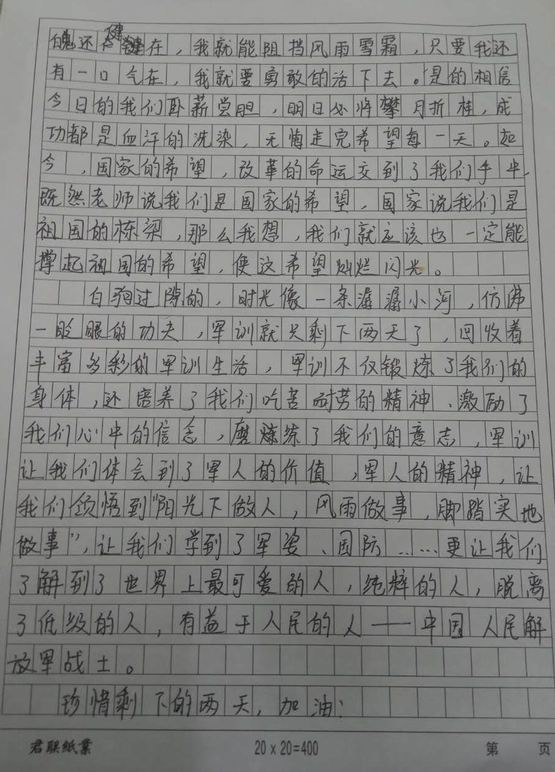 魄还健在，我就能阻挡风雨雪霜，只要我还
有一口气在，我就要勇敢的活下去。是的相信
今日的我们卧薪尝胆，明日必将攀月折桂，成
功都是血汗的洗染，无悔走完希望每一天。如
今，国家的希望，改革的命运交到了我们手中，
既然老师说我们是国家的希望，国家说我们是
祖国的栋梁，那么我想，我们就应该也一定能
撑起祖国的希望，使这希望灿烂闪光。
白驹过隙的，时光像一条潺潺小河，仿佛
一眨眼的功夫，军训就只剩下两天了，回收着
丰富多彩的军训生活，军训不仅锻炼了我们的
身体，还培养了我们吃苦耐劳的精神、激励了
我们心中的信念，磨炼了我们的意志，军训
让我们体会到了军人的价值，军人的精神，让
我们领悟到"阳光下做人，风雨做事，脚踏实地
做事"，让我们学到了军姿、国防……更让我们
了解到了世界上最可爱的人，纯粹的人，脱离
了低级的人，有益于人民的人——中国人民解
放军战士。
珍惜剩下的两天，加油！
君联纸业 20×20=400 第 页